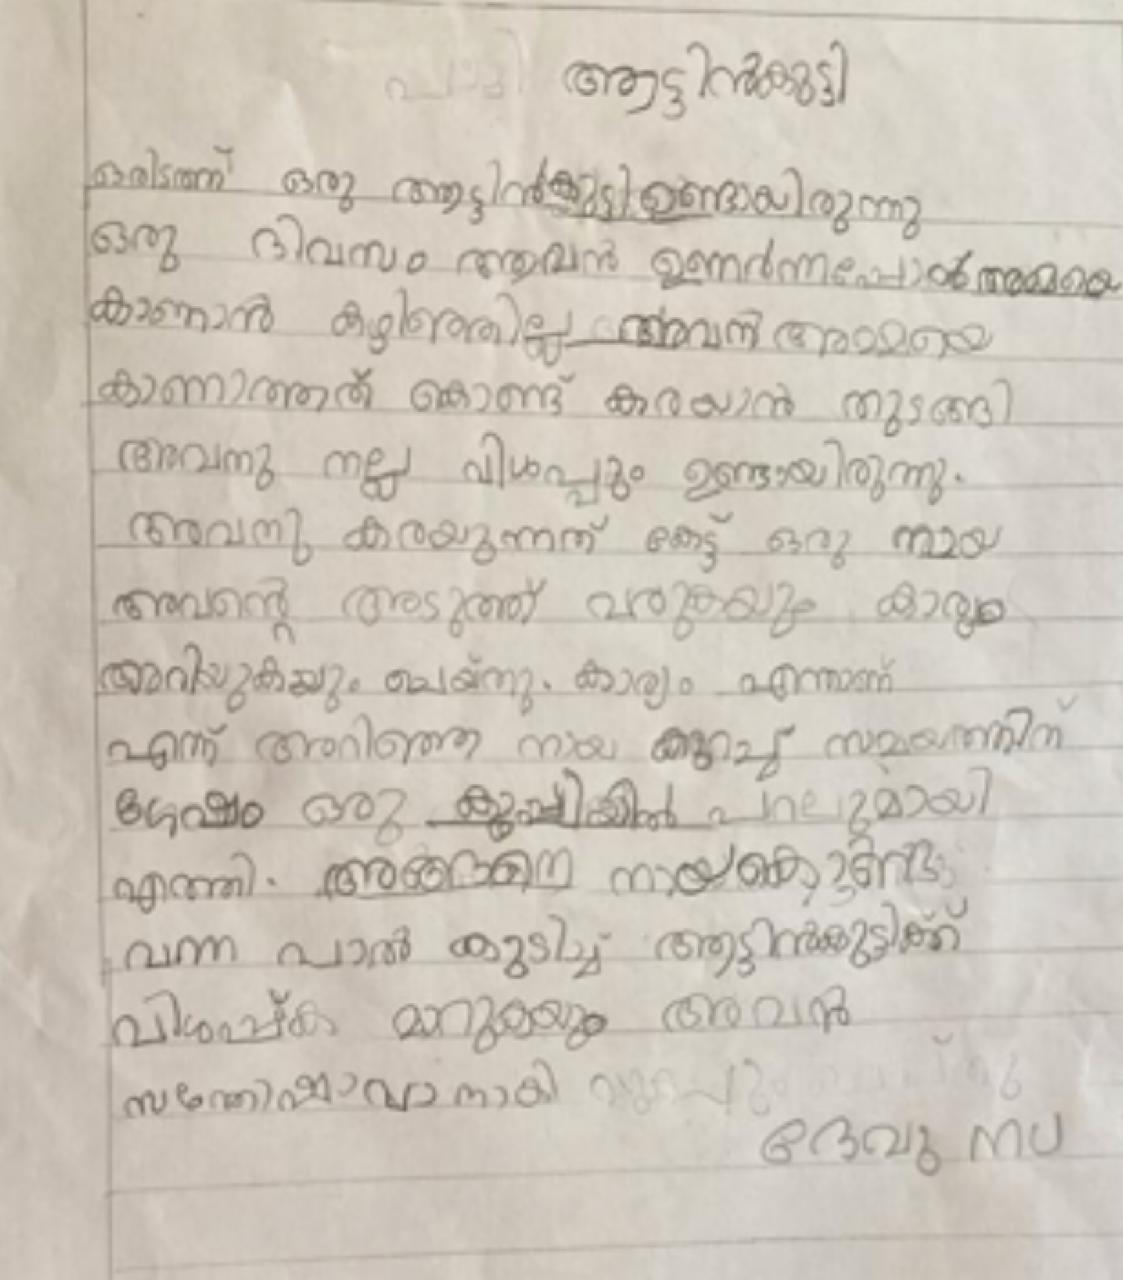 ആട്ടിൻകുട്ടി
ഒരിടത്ത് ഒരു ആട്ടിൻകുട്ടി ഉണ്ടായിരുന്നു
ഒരു ദിവസം ആവൻ ഉണർന്നപ്പോൾ അമ്മയെ
കാണാൻ കഴിഞ്ഞില്ല അവന് അമ്മയെ
കാണാത്തത് കൊണ്ട് കരയാൻ തുടങ്ങി
അവനു നല്ല വിശപ്പും ഉണ്ടായിരുന്നു.
അവനു കരയുന്നത് കേട്ട് ഒരു നായ
അവന്റെ അടുത്ത് വരുകയും കാര്യം
അറിയുകയും ചെയ്നു. കാര്യം എന്താണ്
എന്ന് അറിഞ്ഞ നായ കുറച്ച് സമയത്തിന്
ശേഷം ഒരു കുപ്പിയിൽ പാലുമായി
എത്തി. അങ്ങനെ നായകൊണ്ടു
വന്ന പാൽ കുടിച്ച് ആട്ടിൻകുട്ടിക്ക്
വിശപ്പ് മാറുകയും അവൻ
സന്തോഷവാനാകി
ദേവു